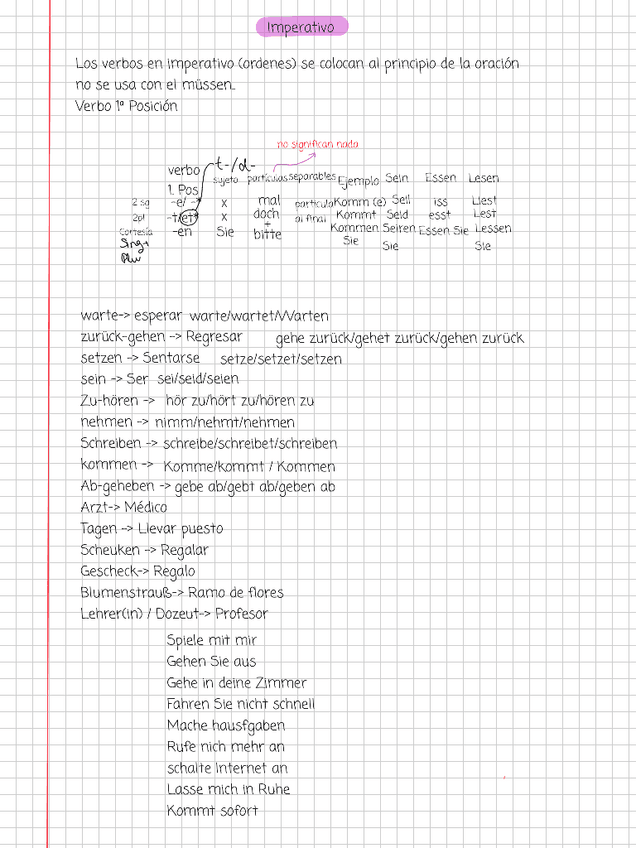 Imperativo
Los verbos en imperativo (ordenes) se colocan al principio de la oración
no se usa con el müssen.
Verbo 1º Posición
no significan nada
verbo t-/d-
1. Pos sujeto partículas separables Ejemplo Sein Essen Lesen
2 sg -e/- x mal partícula Komm (e) Seil iss Liest
2pl -t/et x doch al final Kommt Seid esst Lest
+
Cortesía -en Sie bitte Kommen Seiren Essen Sie Lessen
Sing+ Sie Sie Sie
Plu
warte-> esperar warte/wartet/Warten
zurück-gehen -> Regresar gehe zurück/gehet zurück/gehen zurück
setzen -> Sentarse setze/setzet/setzen
sein -> Ser sei/seid/seien
Zu-hören -> hör zu/hört zu/hören zu
nehmen -> nimm/nehmt/nehmen
Schreiben -> schreibe/schreibet/schreiben
kommen -> Komme/kommt / Kommen
Ab-geheben -> gebe ab/gebt ab/geben ab
Arzt-> Médico
Tagen -> Llevar puesto
Scheuken -> Regalar
Gescheck-> Regalo
Blumenstrauß-> Ramo de flores
Lehrer(in) / Dozeut-> Profesor
Spiele mit mir
Gehen Sie aus
Gehe in deine Zimmer
Fahren Sie nicht schnell
Mache hausfgaben
Rufe nich mehr an
schalte Internet an
Lasse mich in Ruhe
Kommt sofort